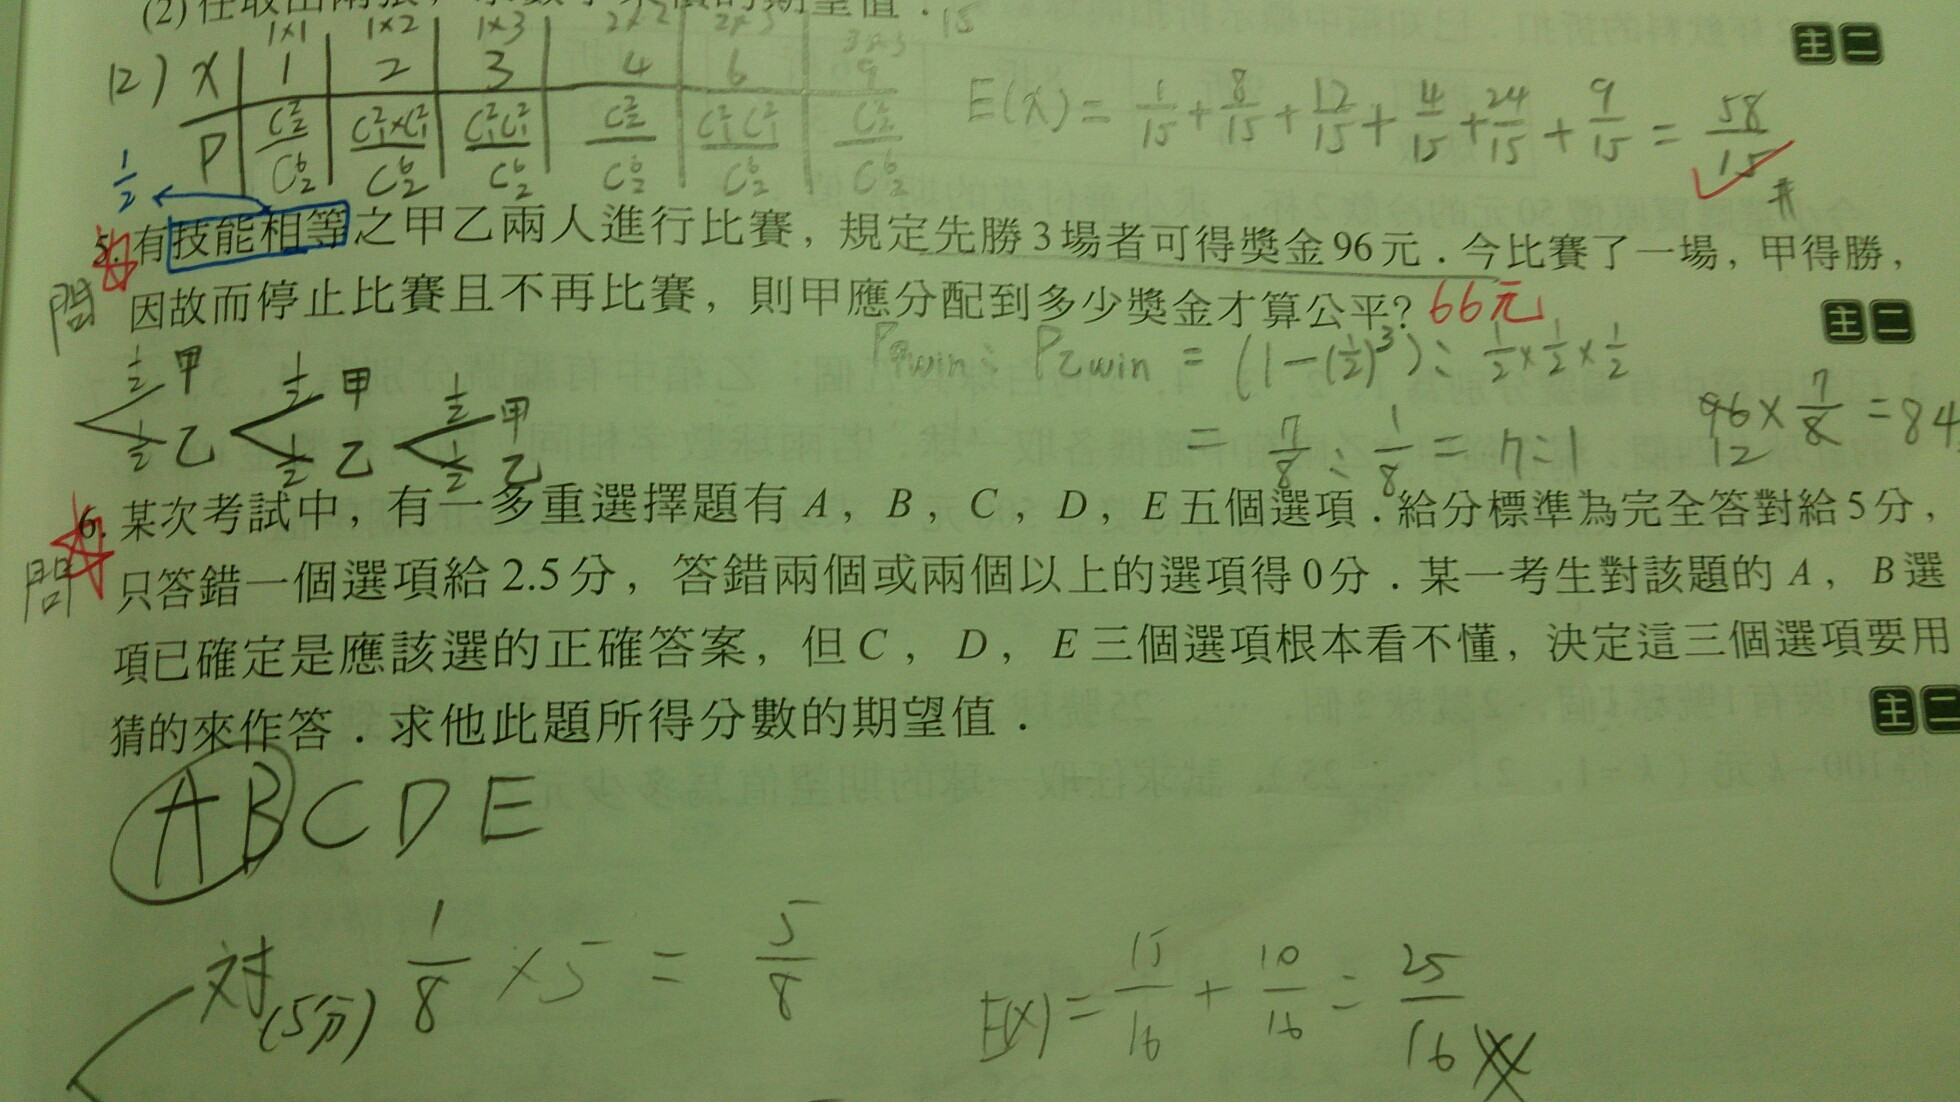 (2)任取出兩張，求數字乘積的期望值．
1×1 1×2 1×3 2×2 2×3 3×3 15
主二
(2) X 1 2 3 4 6 9
P C²₂/C⁶₂ C²₁×C²₁/C⁶₂ C²₁C²₁/C⁶₂ C²₂/C⁶₂ C²₁C²₁/C⁶₂ C²₂/C⁶₂
E(X) = 1/15 + 8/15 + 12/15 + 4/15 + 24/15 + 9/15 = 58/15 #
1/2
5. 有技能相等之甲乙兩人進行比賽，規定先勝3場者可得獎金96元．今比賽了一場，甲得勝，
問 因故而停止比賽且不再比賽，則甲應分配到多少獎金才算公平？ 66元
主二
P甲win : P乙win = (1-(1/2)³) : 1/2×1/2×1/2
1/2 甲 1/2 甲 1/2 甲
1/2 乙 1/2 乙 1/2 乙
= 7/8 : 1/8 = 7:1
96 × 7/8 = 84
12
6. 某次考試中，有一多重選擇題有 A，B，C，D，E 五個選項．給分標準為完全答對給5分，
問 只答錯一個選項給2.5分，答錯兩個或兩個以上的選項得0分．某一考生對該題的 A，B 選
項已確定是應該選的正確答案，但 C，D，E 三個選項根本看不懂，決定這三個選項要用
猜的來作答．求他此題所得分數的期望值．
主二
A B C D E
対(5分) 1/8 × 5 = 5/8
E(X) = 15/16 + 10/16 = 25/16